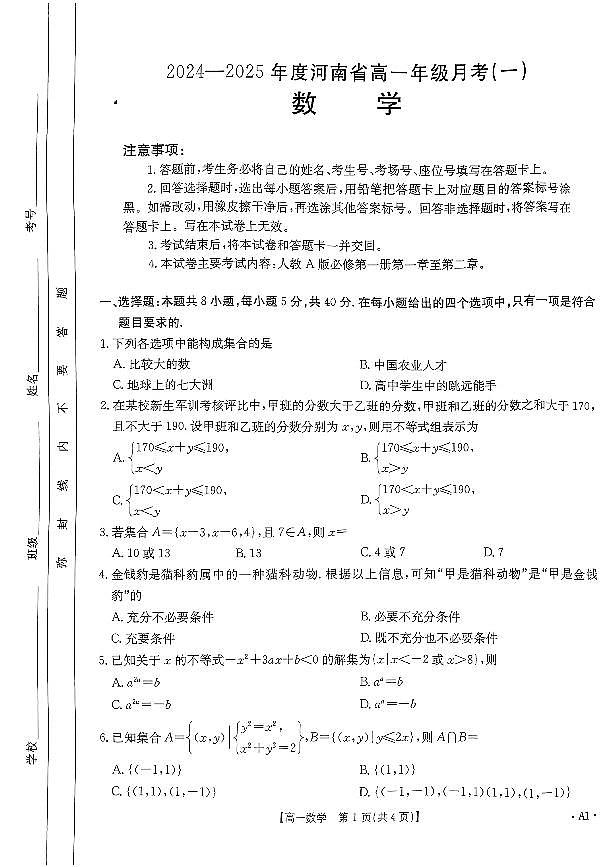 2024—2025年度河南省高一年级月考(一)
数 学
注意事项:
1.答题前,考生务必将自己的姓名、考生号、考场号、座位号填写在答题卡上。
2.回答选择题时,选出每小题答案后,用铅笔把答题卡上对应题目的答案标号涂
黑。如需改动,用橡皮擦干净后,再选涂其他答案标号。回答非选择题时,将答案写在
答题卡上。写在本试卷上无效。
3.考试结束后,将本试卷和答题卡一并交回。
4.本试卷主要考试内容:人教A版必修第一册第一章至第二章。
一、选择题:本题共8小题,每小题5分,共40分.在每小题给出的四个选项中,只有一项是符合
题目要求的.
1.下列各选项中能构成集合的是
A.比较大的数 B.中国农业人才
C.地球上的七大洲 D.高中学生中的跳远能手
2.在某校新生军训考核评比中,甲班的分数大于乙班的分数,甲班和乙班的分数之和大于170,
且不大于190.设甲班和乙班的分数分别为x,y,则用不等式组表示为
A.{170≤x+y≤190, x<y B.{170≤x+y≤190, x>y
C.{170<x+y≤190, x<y D.{170<x+y≤190, x>y
3.若集合A={x-3,x-6,4},且7∈A,则x=
A.10或13 B.13 C.4或7 D.7
4.金钱豹是猫科豹属中的一种猫科动物.根据以上信息,可知“甲是猫科动物”是“甲是金钱
豹”的
A.充分不必要条件 B.必要不充分条件
C.充要条件 D.既不充分也不必要条件
5.已知关于x的不等式-x²+3ax+b<0的解集为{x|x<-2或x>8},则
A.a²ᵃ=b B.aᵃ=b
C.a²ᵃ=-b D.aᵃ=-b
6.已知集合A={(x,y)|{y²=x², x²+y²=2},B={(x,y)|y≤2x},则A∩B=
A.{(-1,1)} B.{(1,1)}
C.{(1,1),(1,-1)} D.{(-1,-1),(-1,1)(1,1),(1,-1)}
【高一数学 第1页(共4页)】
·A1·
学校
班级
姓名
考号
弥 封 线 内 不 要 答 题